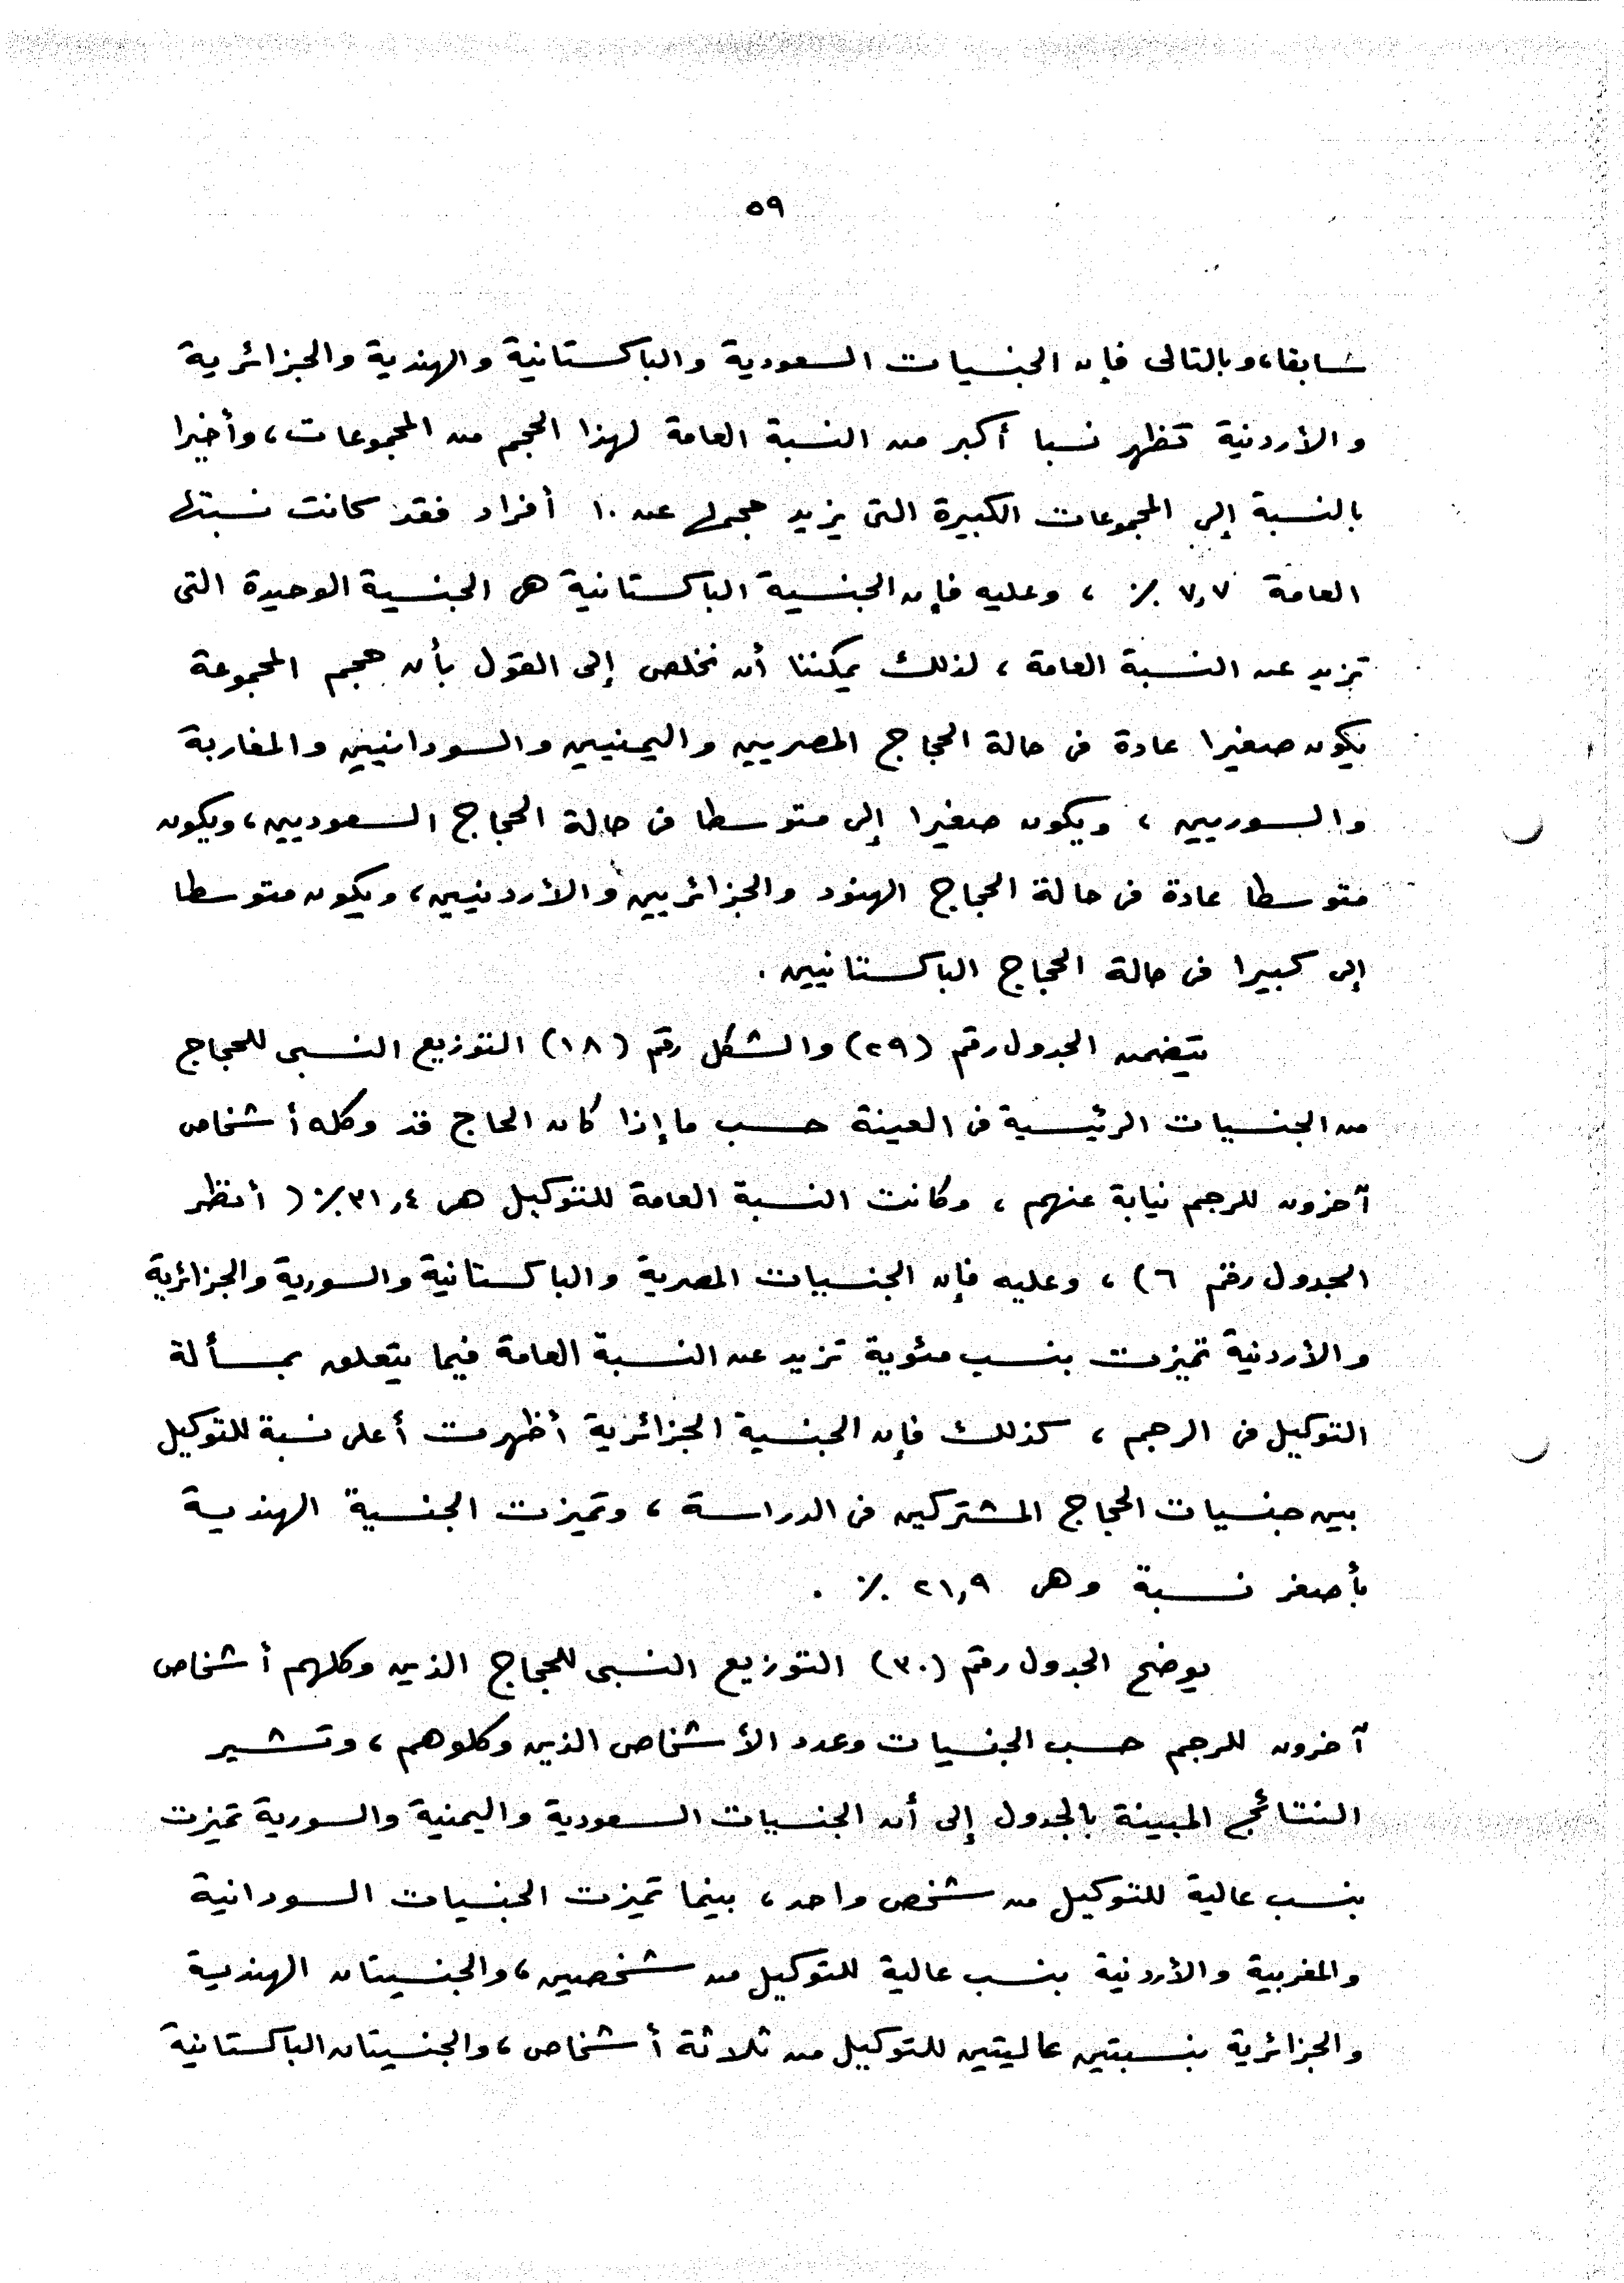 ٥٩
سابقا، وبالتالى فإن الجنسيات السعودية والباكستانية والهندية والجزائرية
والأردنية تظهر نسبا أكبر من النسبة العامة لهذا الحجم من المجموعات، وأخيرا
بالنسبة إلى المجموعات الكبيرة التى يزيد حجمها عن ١٠ أفراد فقد كانت نسبتها
العامة ٧,٧ ٪ ، وعليه فإن الجنسية الباكستانية هى الجنسية الوحيدة التى
تزيد عن النسبة العامة ، لذلك يمكننا أن نخلص إلى القول بأن حجم المجموعة
يكون صغيرا عادة فى حالة الحجاج المصريين واليمنيين والسودانيين والمغاربة
والسوريين ، ويكون صغيرا إلى متوسطا فى حالة الحجاج السعوديين، ويكون
متوسطا عادة فى حالة الحجاج الهنود والجزائريين والأردنيين، ويكون متوسطا
إلى كبيرا فى حالة الحجاج الباكستانيين .
يتضمن الجدول رقم (٢٩) والشكل رقم (١٨) التوزيع النسبى للحجاج
من الجنسيات الرئيسية فى العينة حسب ما إذا كان الحاج قد وكله أشخاص
آخرون للرجم نيابة عنهم ، وكانت النسبة العامة للتوكيل هى ٣١,٤٪ ( أنظر
الجدول رقم ٦) ، وعليه فإن الجنسيات المصرية والباكستانية والسورية والجزائرية
والأردنية تميزت بنسب مئوية تزيد عن النسبة العامة فيما يتعلق بمسألة
التوكيل فى الرجم ، كذلك فإن الجنسية الجزائرية أظهرت أعلى نسبة للتوكيل
بين جنسيات الحجاج المشتركين فى الدراسة ، وتميزت الجنسية الهندية
بأصغر نسبة وهى ٢١,٩ ٪ .
يوضح الجدول رقم (٣٠) التوزيع النسبى للحجاج الذين وكلهم أشخاص
آخرون للرجم حسب الجنسيات وعدد الأشخاص الذين وكلوهم ، وتشير
النتائج المبينة بالجدول إلى أن الجنسيات السعودية واليمنية والسورية تميزت
بنسب عالية للتوكيل من شخص واحد ، بينما تميزت الجنسيات السودانية
والمغربية والأردنية بنسب عالية للتوكيل من شخصين ، والجنسيتان الهندية
والجزائرية بنسبتين عاليتين للتوكيل من ثلاثة أشخاص ، والجنسيتان الباكستانية